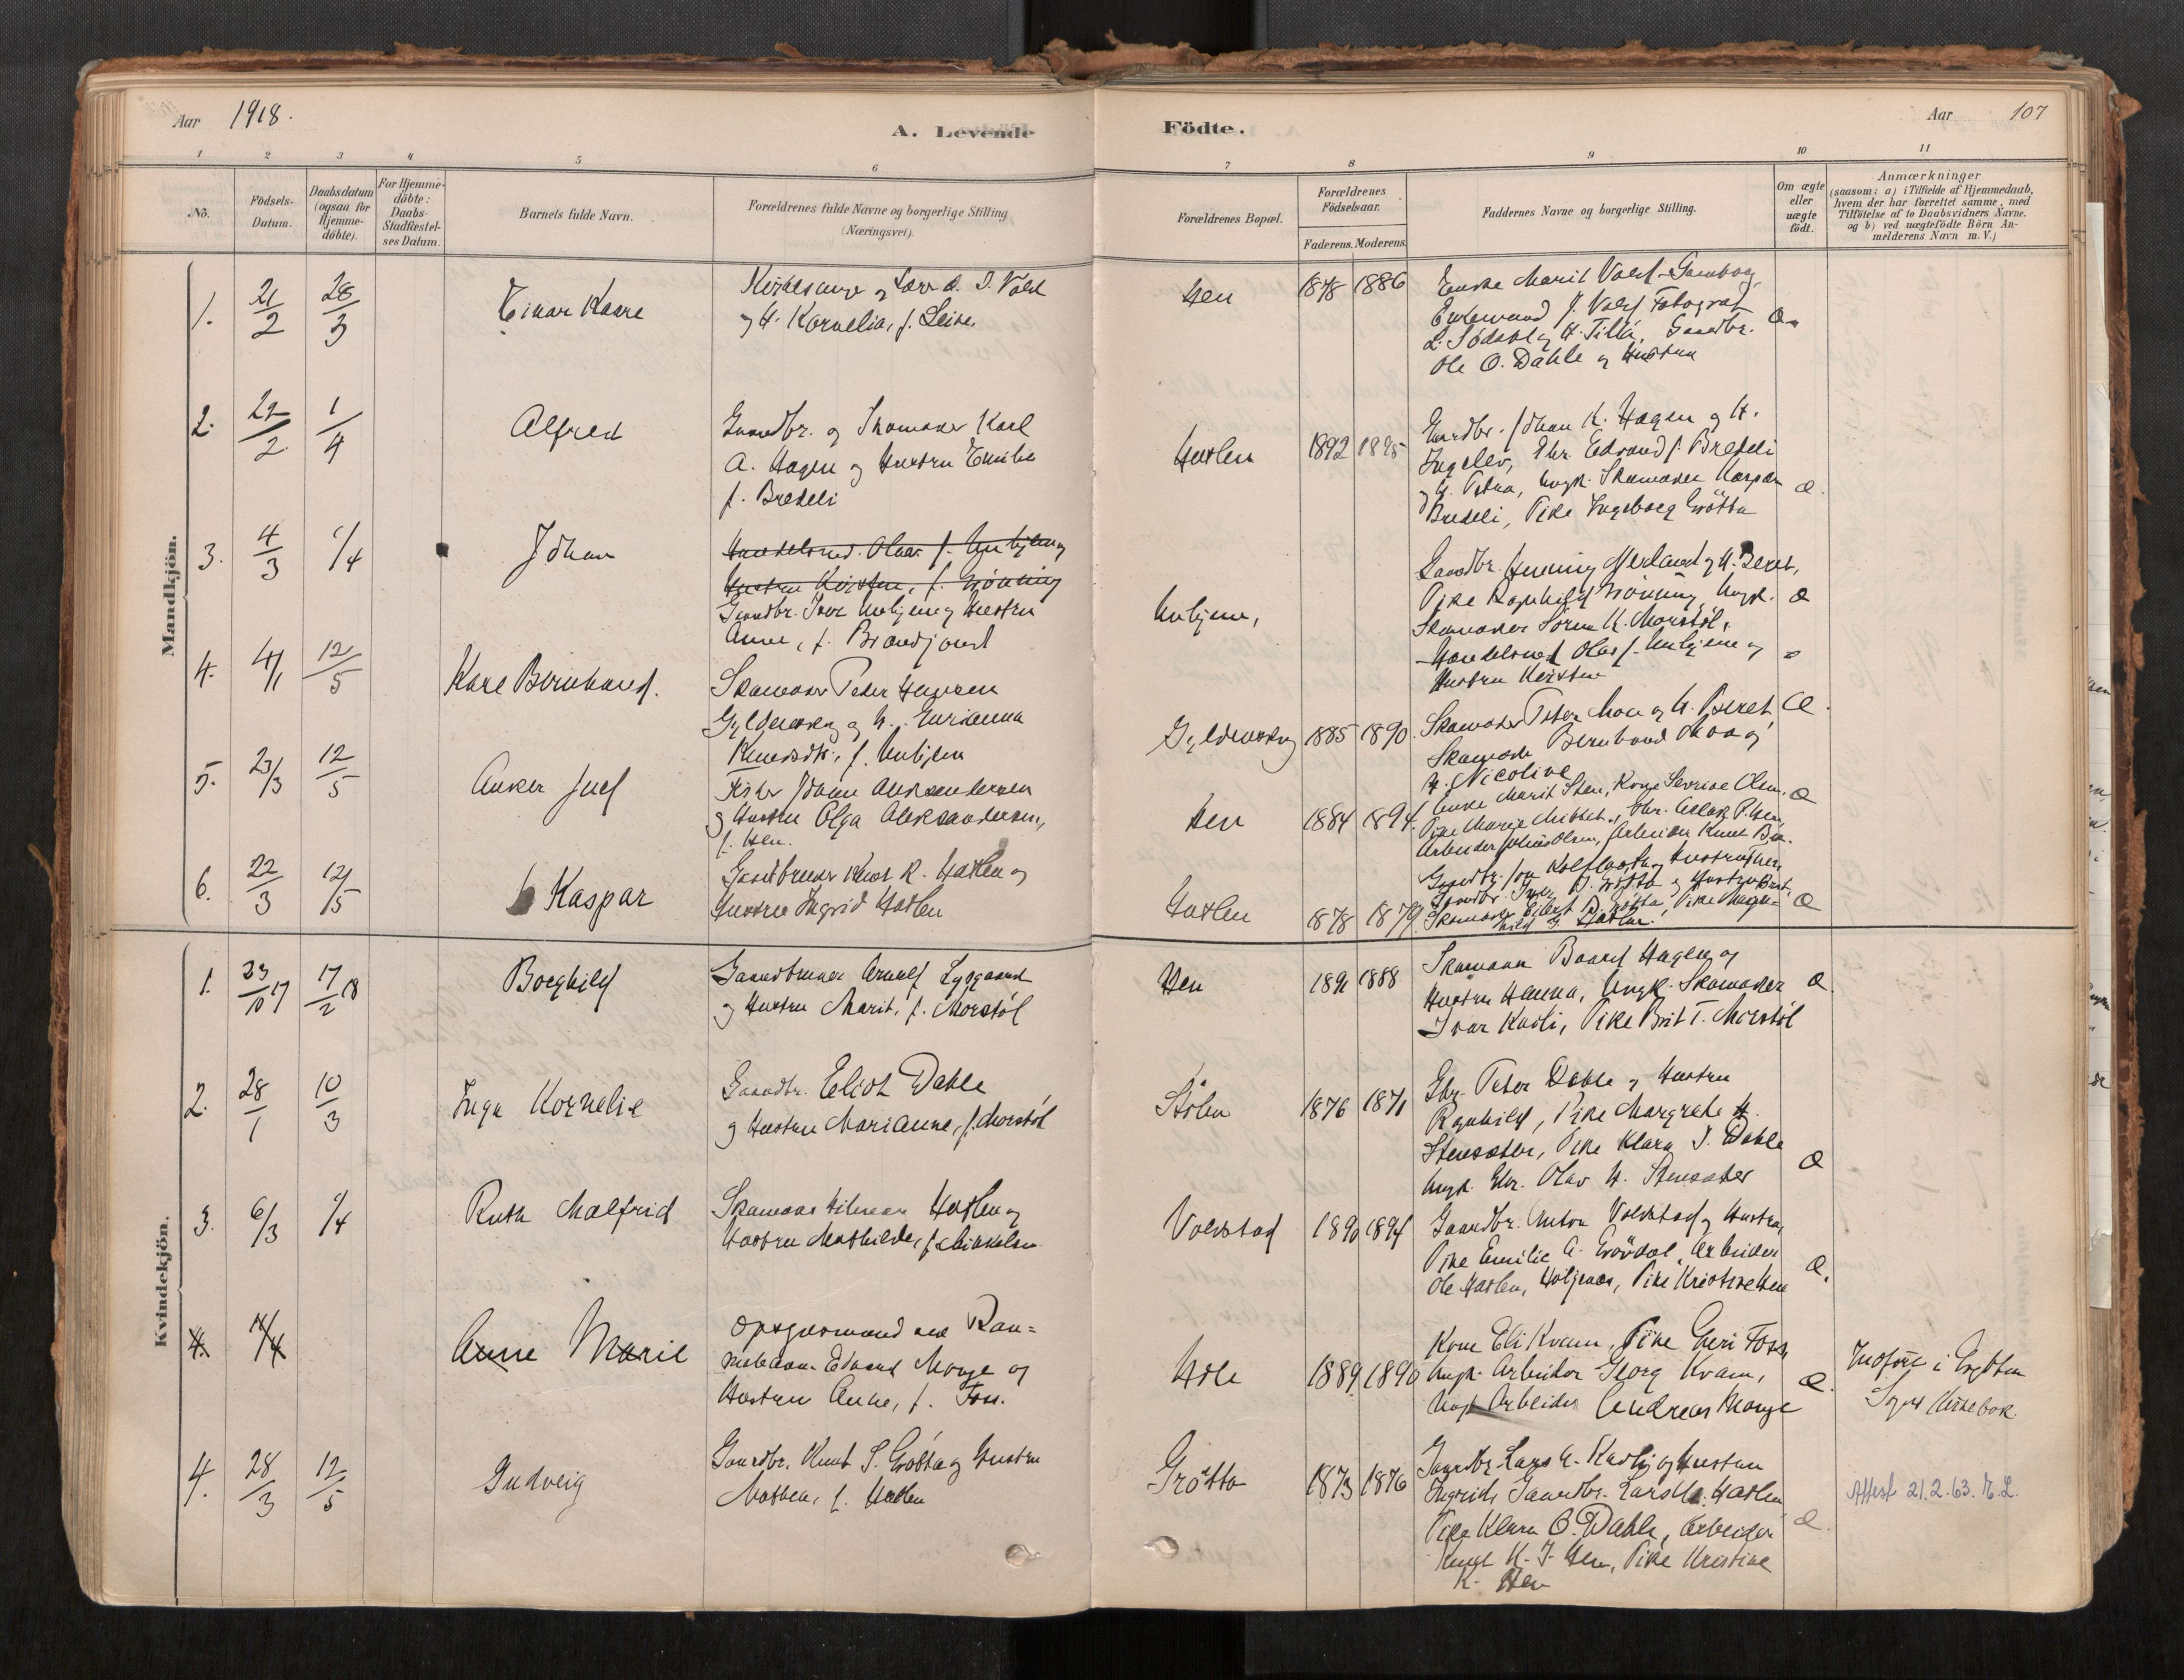 Aar 1918.
A. Levende
Födte.
Aar 107
1 2 3 4 5 6 7 8 9 10 11
No.
Födsels-
Datum.
Daabsdatum
(ogsaa for
Hjemme-
döbte).
For Hjemme-
döbte:
Daabs-
Stadfæstel-
ses Datum.
Barnets fulde Navn.
Forældrenes fulde Navne og borgerlige Stilling
(Næringsvei).
Forældrenes Bopæl.
Forældrenes
Födselsaar.
Faderens. Moderens.
Faddernes Navne og borgerlige Stilling.
Om ægte
eller
uægte
födt.
Anmærkninger
(saasom: a) i Tilfælde af Hjemmedaab,
hvem der har forrettet samme, med
Tilföielse af to Daabsvidners Navne.
og b) ved uægtefödte Börn An-
melderens Navn m. V.)
Mandkjön.
1. 21/2 28/3
Einar Kaare
Kirkesanger og Lærer J. Vold
og H. Kornelia, f.
Hen 1878 1886
Enke Marit Vold
Enkemand J. Vold Fotograf
Gaardbr.
Ole O. Dahle og Hustru
Æ.
2. 22/2 1/4
Alfred
Gaardbr. og Skomaker Karl
A. Hagen og Hustru Emilie
f. Bredeli
Haslen 1892 1895
Gardbr. Johan K. Hagen og H.
Ingelev, Gbr. Edvard J. Bredeli
og H. Petra, Ungk. Skomaker Kaspar
Bredeli, Pike Ingeborg Grötta
Æ.
3. 4/3 1/4
Johan
Handelsmd. Olav J. Unhjem og
Hustru Kirsten, f. Grönning
Gaardbr. Iver Unhjem og Hustru
Anne, f.
Unhjem,
Gaardbr. Henning og H. Beret,
Pike Ragnhild Grönning, Ungk.
Skomaker Sören K. Morstöl,
Handelsmd. Olav J. Unhjem og
Hustru Kirsten
Æ
4. 4/1 12/5
Kare Bernhard.
Skomaker Peder Hansen
Gyldenskog og H.
f. Unhjem
Gyldenskog 1885 1890
Skomaker Peter Moe og H. Beret
Skomaker Bernhard Moa og
H. Nicoline
Æ.
5. 23/3 12/5
Anker Juel
Fisker Johan Aleksandersen
og Hustru Olga Aleksandersen,
f. Hen.
Hen 1884 1894
Enke Marit Sten, Kone Severine Olsen,
Pike Marie
Arbeider Olsen, Arbeider Knut
Æ
6. 22/3 12/5
Kaspar
Gardbruker Knut K. Haslen og
Hustru Ingrid Haslen
Haslen 1878 1879
Gaardbr. Jon Kolflaath og Hustru
Gaardbr. Iver D. Grötta og Hustru Brit,
Skomaker Eilert D. Grötta, Pike Magn-
hild J. Haslen.
Æ
Kvindekjön.
1. 23/10 17 17/2 18
Borghild
Gaardbruker Arnulf Lyggaard
og Hustru Marit, f. Morstöl
Hen 1891 1888
Skomaker Baard Hagen og
Hustru Hanna, Ungk. Skomaker
Ivar Kavli, Pike Brit T. Morstöl
Æ.
2. 28/1 10/3
Inga Kornelie
Gaardbr. Eliot Dahle
og Hustru Marianne, f. Morstöl
Stölen 1876 1871
Gbr. Peter Dahle og Hustru
Ragnhild, Pike Margrete H.
Stensæter, Pike Klara J. Dahle
Ungk. Gbr. Olav H. Stensæter
Æ
3. 6/3 1/4
Ruth Malfrid
Skomaker Hilmar Haslen og
Hustru Mathilde, f. Mikkelsen
Voldstad 1890 1894
Gaardbr. Anton Voldstad og Hustru,
Pike Emilie A. Grövdal, Arbeider
Ole Haslen, Holjenes, Pike Kristine Hen
Æ.
4. 14/4
Anne Marie
Opsynsmand ved Rau-
mabanen Edvard Monge og
Hustru Anne, f. Foss.
Hole 1889 1890
Kone Eli Kvam, Pike Guri Foss,
Ungk. Arbeider Georg Kvam,
Ungk. Arbeider Andreas Monge
Æ.
Indfört i Grytten
Sogns Kirkebok.
4. 28/3 12/5
Gudveig
Gaardbr. Knut S. Grötta og Hustru
Mathea, f. Haslen
Grötta 1873 1876
Gaardbr. Lars A. Kavli og Hustru
Ingrid, Gaardbr. Lars M. Haslen
Pike Klara O. Dahle, Arbeider
Knut K. J. Hen, Pike Kristine
K. Hen
Æ.
Attest 21.2.63. K.L.